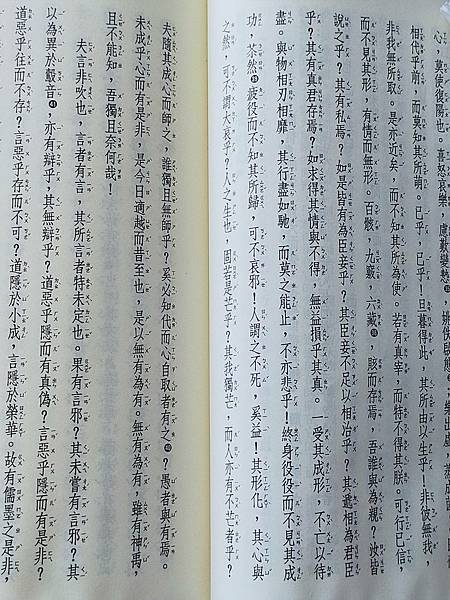 心，莫使復陽也。喜怒哀樂，慮歎變慹，姚佚啟態，樂出虛，蒸成菌
相代乎前，而莫知其所萌。已乎，已乎！旦暮得此，其所由以生乎！非彼無我，
非我無所取。是亦近矣，而不知其所為使。若有真宰，而特不得其朕。可行已信，
而不見其形，有情而無形。百骸，九竅，六藏，賅而存焉，吾誰與為親？汝皆
說之乎？其有私焉？如是皆有為臣妾乎？其臣妾不足以相治乎？其遞相為君臣
乎？其有真君存焉？如求得其情與不得，無益損乎其真。一受其成形，不亡以待
盡。與物相刃相靡，其行盡如馳，而莫之能止，不亦悲乎！終身役役而不見其成
功，苶然疲役而不知其所歸，可不哀邪！人謂之不死，奚益！其形化，其心與
之然，可不謂大哀乎？人之生也，固若是芒乎？其我獨芒，而人亦有不芒者乎？
夫隨其成心而師之，誰獨且無師乎？奚必知代而心自取者有之？愚者與有焉。
未成乎心而有是非，是今日適越而昔至也，是以無有為有。無有為有，雖有神禹，
且不能知，吾獨且奈何哉！
夫言非吹也，言者有言，其所言者特未定也。果有言邪？其未嘗有言邪？其
以為異於鷇音㊶，亦有辯乎，其無辯乎？道惡乎隱而有真偽？言惡乎隱而有是非？
道惡乎往而不存？言惡乎存而不可？道隱於小成，言隱於榮華。故有儒墨之是非，